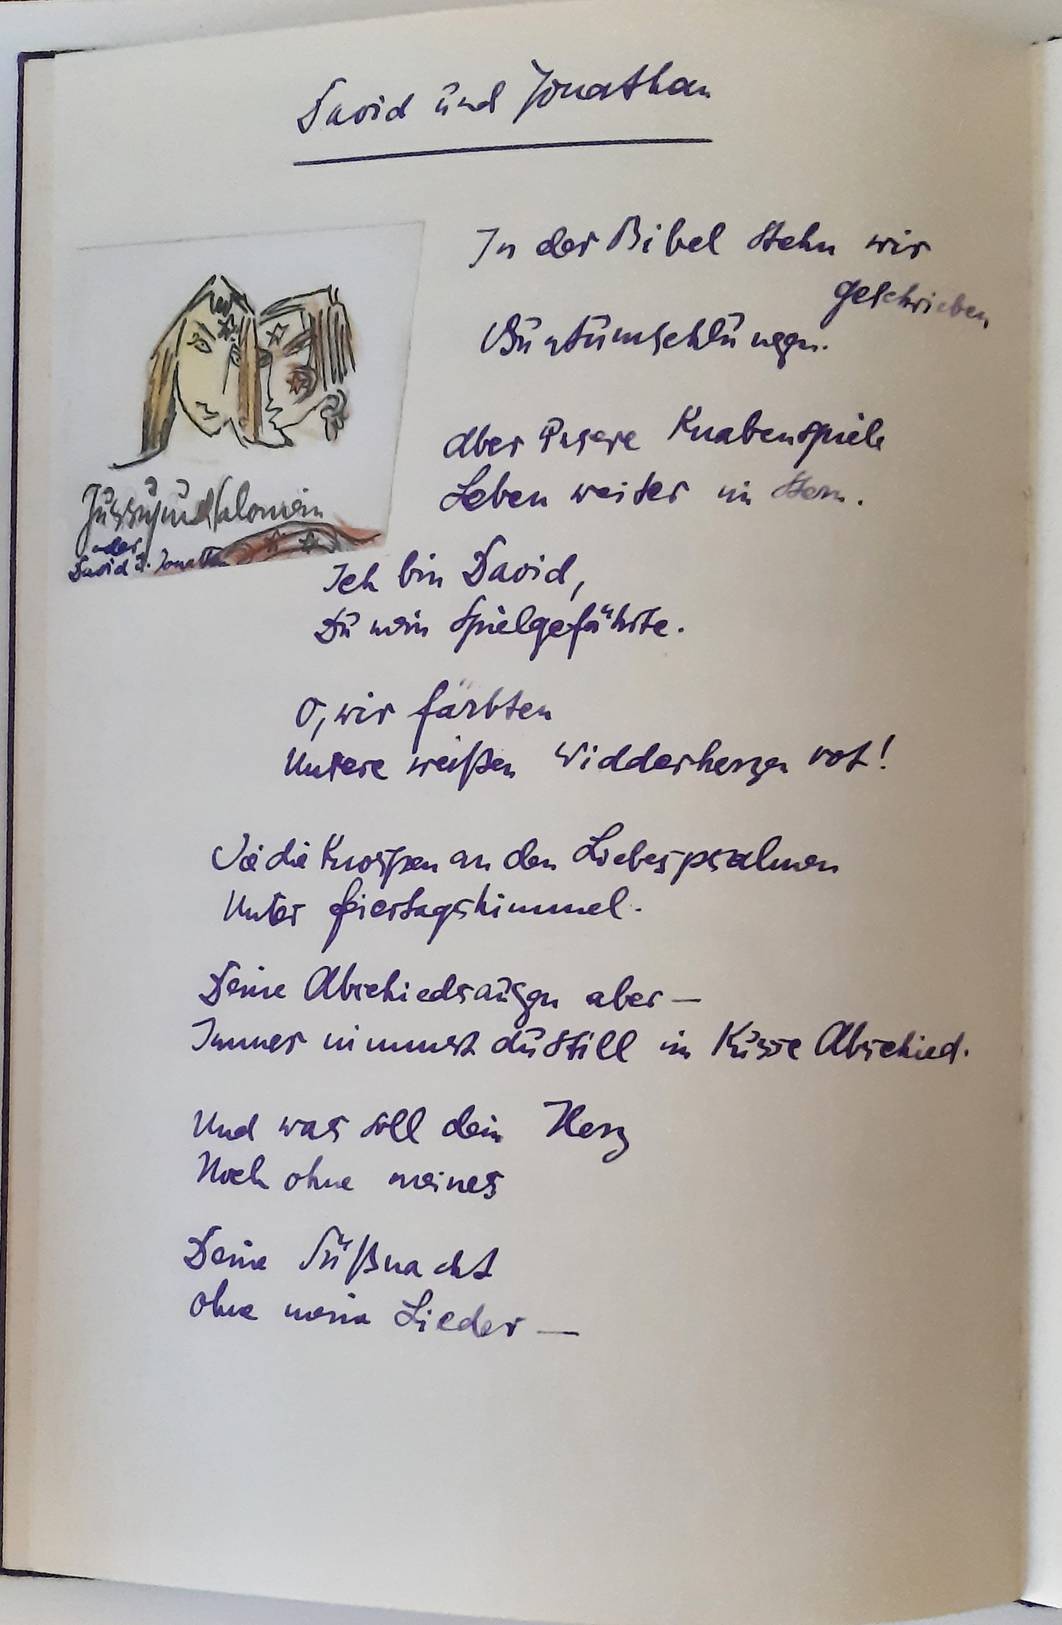 David und Jonathan
In der Bibel stehn wir
geschrieben
Buntumschlungen.
Aber unsere Knabenspiele
Leben weiter im Stern.
Jussuf und Salomein
oder
David u. Jonathan
Ich bin David,
Du mein Spielgefährte.
O, wir färbten
Unsere weißen Widderherzen rot!
Wie die Knospen an den Liebespsalmen
Unter Feiertagshimmel.
Deine Abschiedsaugen aber —
Immer nimmst du still im Kusse Abschied.
Und was soll dein Herz
Noch ohne meines
Deine Süßnacht
Ohne meine Lieder —